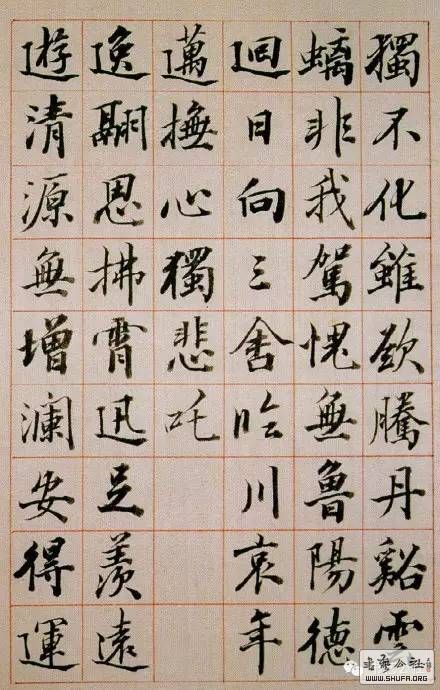 獨不化雖欲騰丹谿雲
螭非我駕愧無魯陽德
迴日向三舍臨川哀年
邁撫心獨悲吒
逸翮思拂霄迅足羨遠
遊清源無增瀾安得運
書藝公社
WWW.SHUFA.ORG